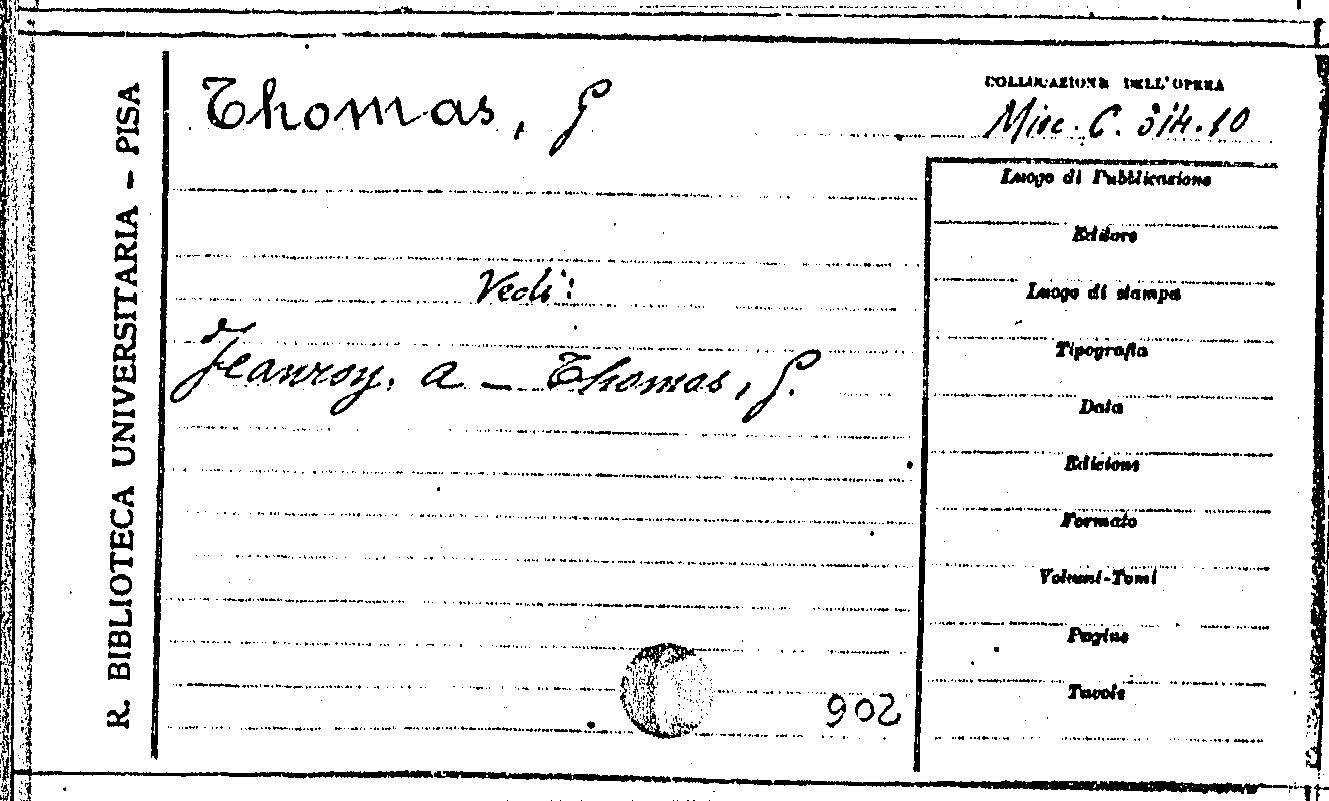 R. BIBLIOTECA UNIVERSITARIA - PISA
Thomas, G
COLLOCAZIONE DELL'OPERA
Misc. C. 314.10
Vedi:
Jeanroy, A - Thomas, G.
Luogo di Pubblicazione
Editore
Luogo di stampa
Tipografia
Data
Edizione
Formato
Volumi-Tomi
Pagine
Tavole
902